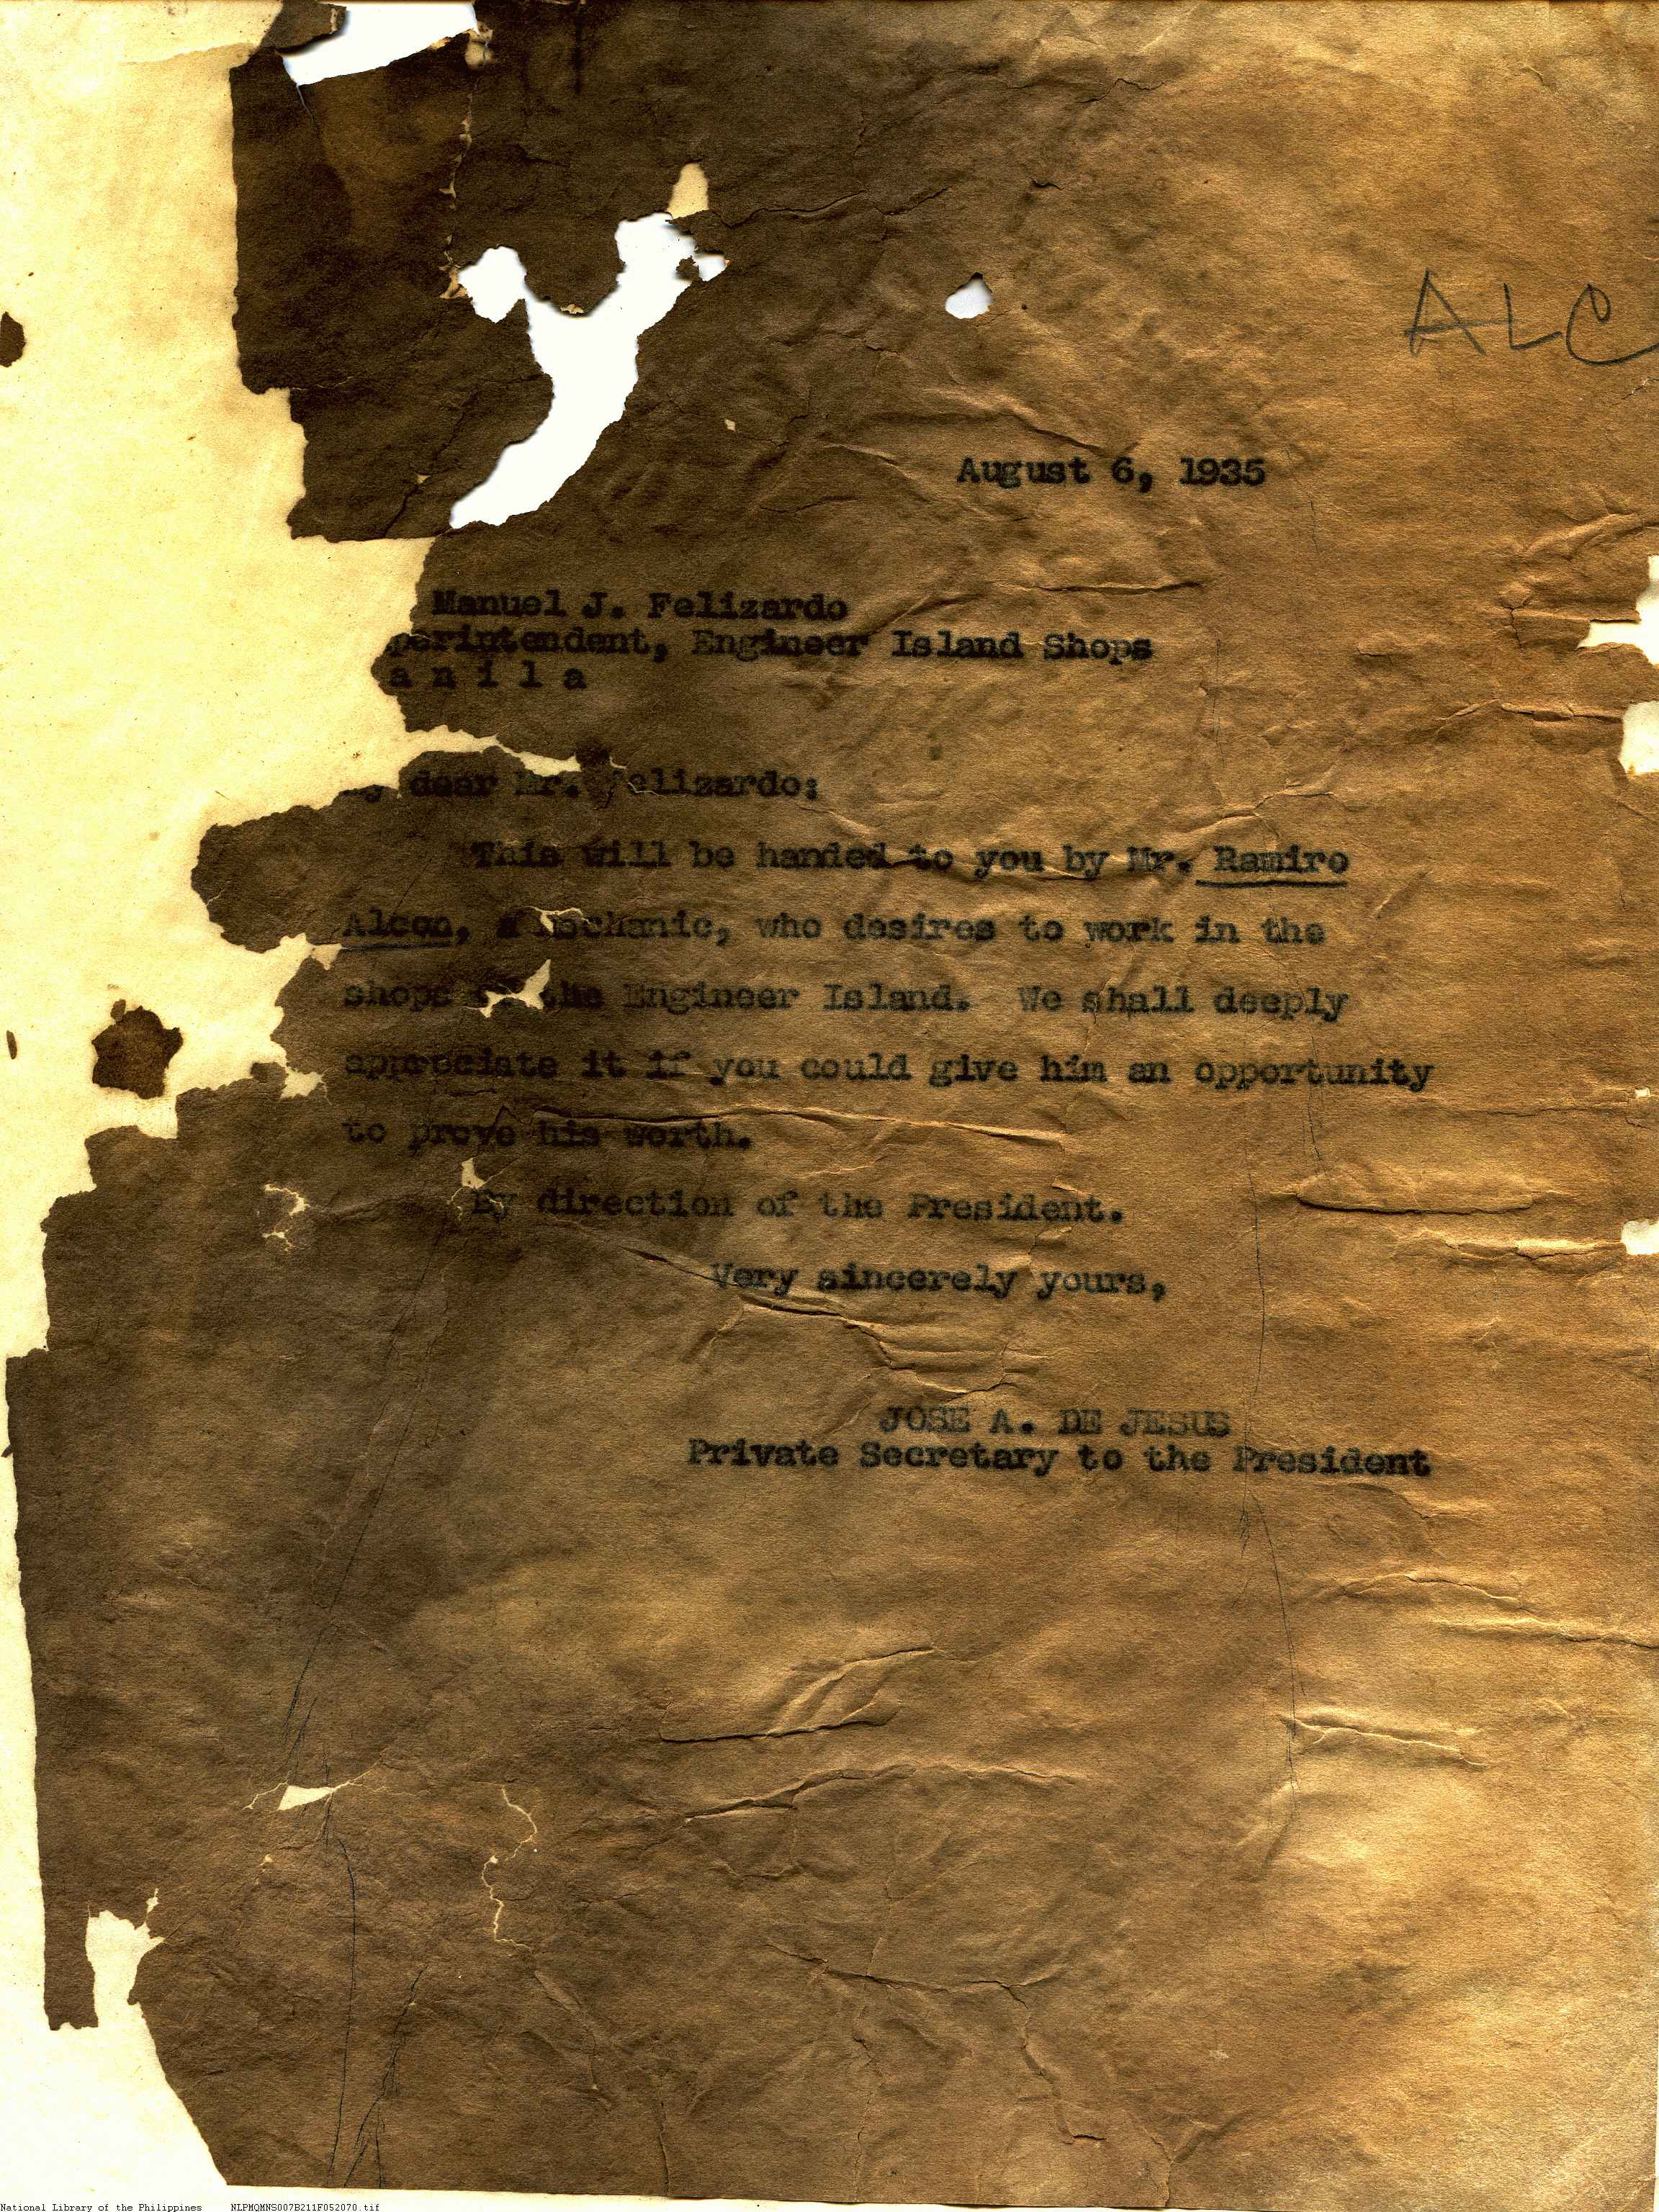 ALC
August 6, 1935
Manuel J. Felizardo
perintendent, Engineer Island Shops
a n i l a
y dear Mr. Felizardo:
This will be handed to you by Mr. Ramiro
Alcon, a mechanic, who desires to work in the
shops the Engineer Island. We shall deeply
appreciate it if you could give him an opportunity
to prove his worth.
By direction of the President.
Very sincerely yours,
JOSE A. DE JESUS
Private Secretary to the President
National Library of the Philippines NLPMQMNS007B211F052070.tif